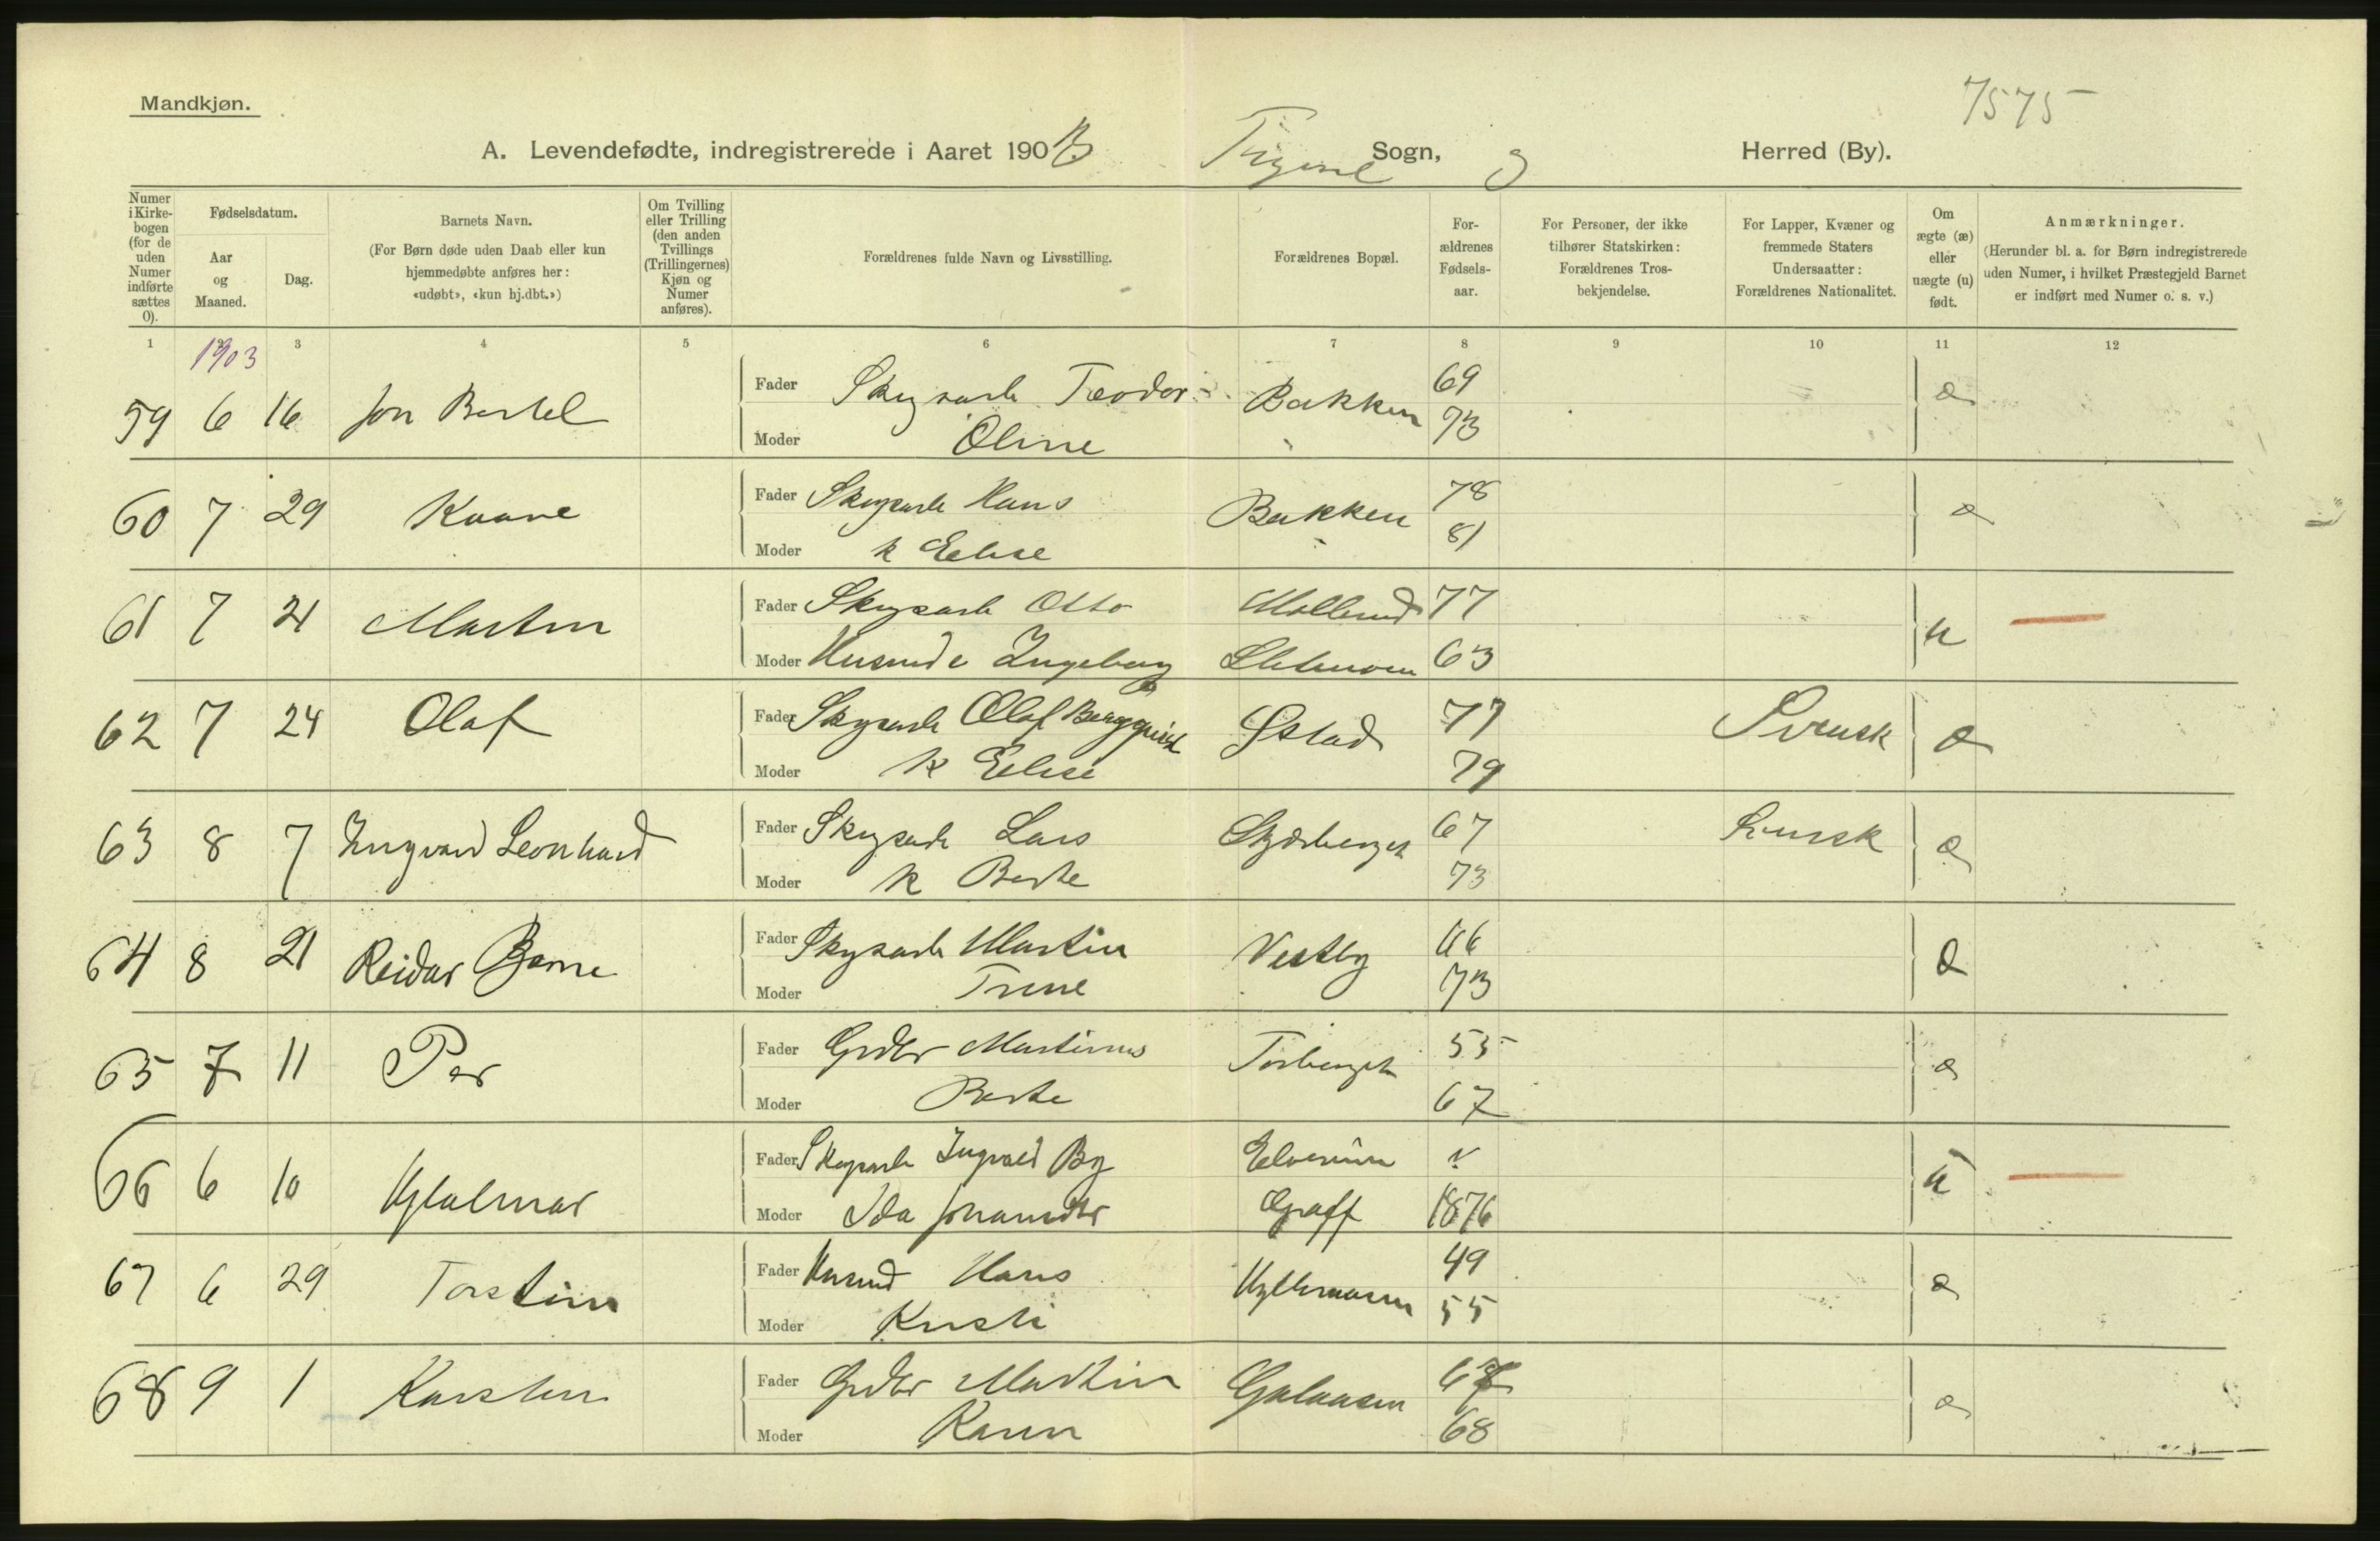 7575
Mandkjøn.
A. Levendefødte, indregistrerede i Aaret 1903 Trysil Sogn, Herred (By).
Numer i Kirke-bogen (for de uden Numer indførte sættes 0).
Fødselsdatum.
Aar og Maaned.
Dag.
Barnets Navn.
(For Børn døde uden Daab eller kun hjemmedøbte anføres her: «udøbt», «kun hj.dbt.»)
Om Tvilling eller Trilling (den anden Tvillings (Trillingernes) Kjøn og Numer anføres).
Forældrenes fulde Navn og Livsstilling.
Forældrenes Bopæl.
For-ældrenes Fødsels-aar.
For Personer, der ikke tilhører Statskirken: Forældrenes Tros-bekjendelse.
For Lapper, Kvæner og fremmede Staters Undersaatter: Forældrenes Nationalitet.
Om ægte (æ) eller uægte (u) født.
Anmærkninger.
(Herunder bl. a. for Børn indregistrerede uden Numer, i hvilket Præstegjeld Barnet er indført med Numer o. s. v.)
1 2 3 4 5 6 7 8 9 10 11 12
1903
59 6 16 Jon Bertel Fader Teodor Bakken 69 æ
Moder Oline 73
60 7 29 Kaare Fader Hans Bakken 78 æ
Moder k Elise 81
61 7 21 Martin Fader Otto 77 u
Moder Ingeborg 63
62 7 24 Olaf Fader Olaf Bergquist Østad 77 Svensk æ
Moder k Elise 79
63 8 7 Ingvard Leonhard Fader Lars 67 Svensk æ
Moder k Berte 73
64 8 21 Reidar Fader Martin Vestby 66 æ
Moder Trine 73
65 7 11 Per Fader Martinus Torberget 55 æ
Moder Berte 67
66 6 10 Hjalmar Fader Ingvald By Elverum u
Moder Ida Graff 1876
67 6 29 Torstein Fader Husmd Hans 49 æ
Moder Kristi 55
68 9 1 Karsten Fader Martin Galaasen æ
Moder Karen 68